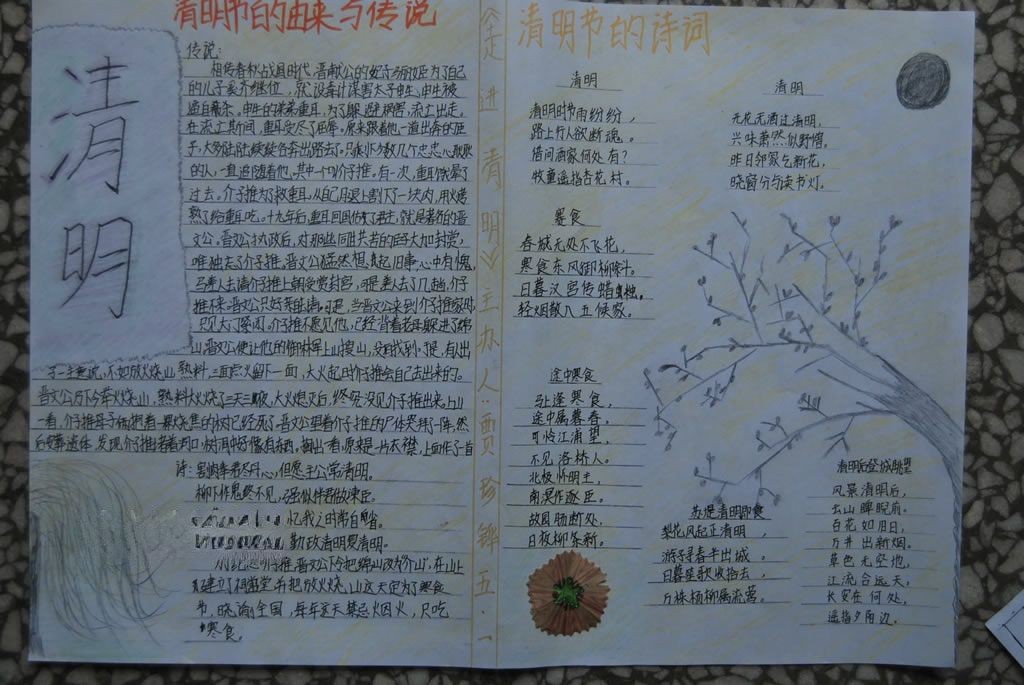 清明节的由来与传说
清明
传说:
相传春秋战国时代,晋献公的妃子骊姬为了自己
的儿子奚齐继位,就设毒计谋害太子申生,申生被
逼自杀。申生的弟弟重耳,为了躲避祸害,流亡出走。
在流亡期间,重耳受尽了屈辱。原来跟着他一道出奔的臣
子,大多陆陆续续各奔出路去了。只剩少数几个忠心耿耿
的人,一直追随着他。其中一个叫介子推。有一次,重耳饿晕了
过去。介子推为了救重耳,从自己腿上割下一块肉,用火烤
熟了给重耳吃。十九年后,重耳回国做了君主,就是著名的晋
文公。晋文公执政后,对那些同甘共苦的臣子大加封赏,
唯独忘了介子推。晋文公猛然想起旧事,心中有愧,
马上差人去请介子推上朝受赏封官,可是差人去了几趟,介子
推不来。晋文公只好亲自去请。可是,当晋文公来到介子推家时,
只见大门紧闭。介子推不愿见他,已经背着老母躲进了绵
山,晋文公便让他的御林军上山搜山,没有找到。于是,有人出
了一主意说,不如放火烧山,熟料,三面点火留下一面,大火起时介子推会自己走出来的。
晋文公乃下令举火烧山,熟料大火烧了三天三夜,大火熄灭后,终究没见介子推出来。上山
一看,介子推母子俩抱着一棵烧焦的树已经死了。晋文公望着介子推的尸体哭拜一阵,然
诗:割肉奉君尽丹心,但愿主公常清明。
柳下作鬼终不见,强似伴君做谏臣。
忆我之时常自省。
勤政清明复清明。
节,晓谕全国,每年这天禁忌烟火,只吃
寒食。
走进清明♡主办人:贾珍铧五·一
清明节的诗词
清明
清明时节雨纷纷,
路上行人欲断魂。
借问酒家何处有?
牧童遥指杏花村。
寒食
春城无处不飞花,
寒食东风御柳斜。
日暮汉宫传蜡烛,
轻烟散入五侯家。
途中寒食
马上逢寒食,
途中属暮春。
可怜江浦望,
不见洛桥人。
北极怀明主,
南溟作逐臣。
故园肠断处,
日夜柳条新。
清明
无花无酒过清明,
兴味萧然似野僧。
昨日邻家乞新花,
晓窗分与读书灯。
苏堤清明即事
梨花风起正清明,
游子寻春半出城。
日暮笙歌收拾去,
万株杨柳属流莺。
清明后登城眺望
风景清明后,
云山睥睨前。
百花如旧日,
万井出新烟。
草色无空地,
江流合远天。
长安在何处,
遥指夕阳边。